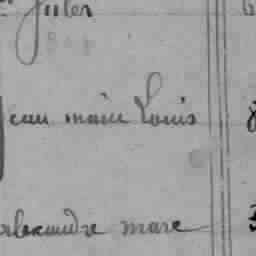 Jules
Jean marie Louis
alexandre marc